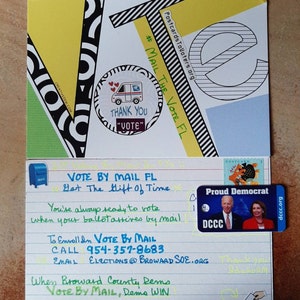 VOTe
PostcardsToVoters.org
# MAIL THE VOTE FL
THANK YOU
"VOTE"
VOTE BY MAIL FL
Get The Gift Of Time
You're always ready to vote
when your ballot arrives by mail.
To Enroll in VOTE BY MAIL
CALL 954-357-8683
EMAIL ELECTIONS@BROWARDSOE.ORG
When Broward County Dems
VOTE BY MAIL, Dems WIN
Proud Democrat
DCCC
dccc.org